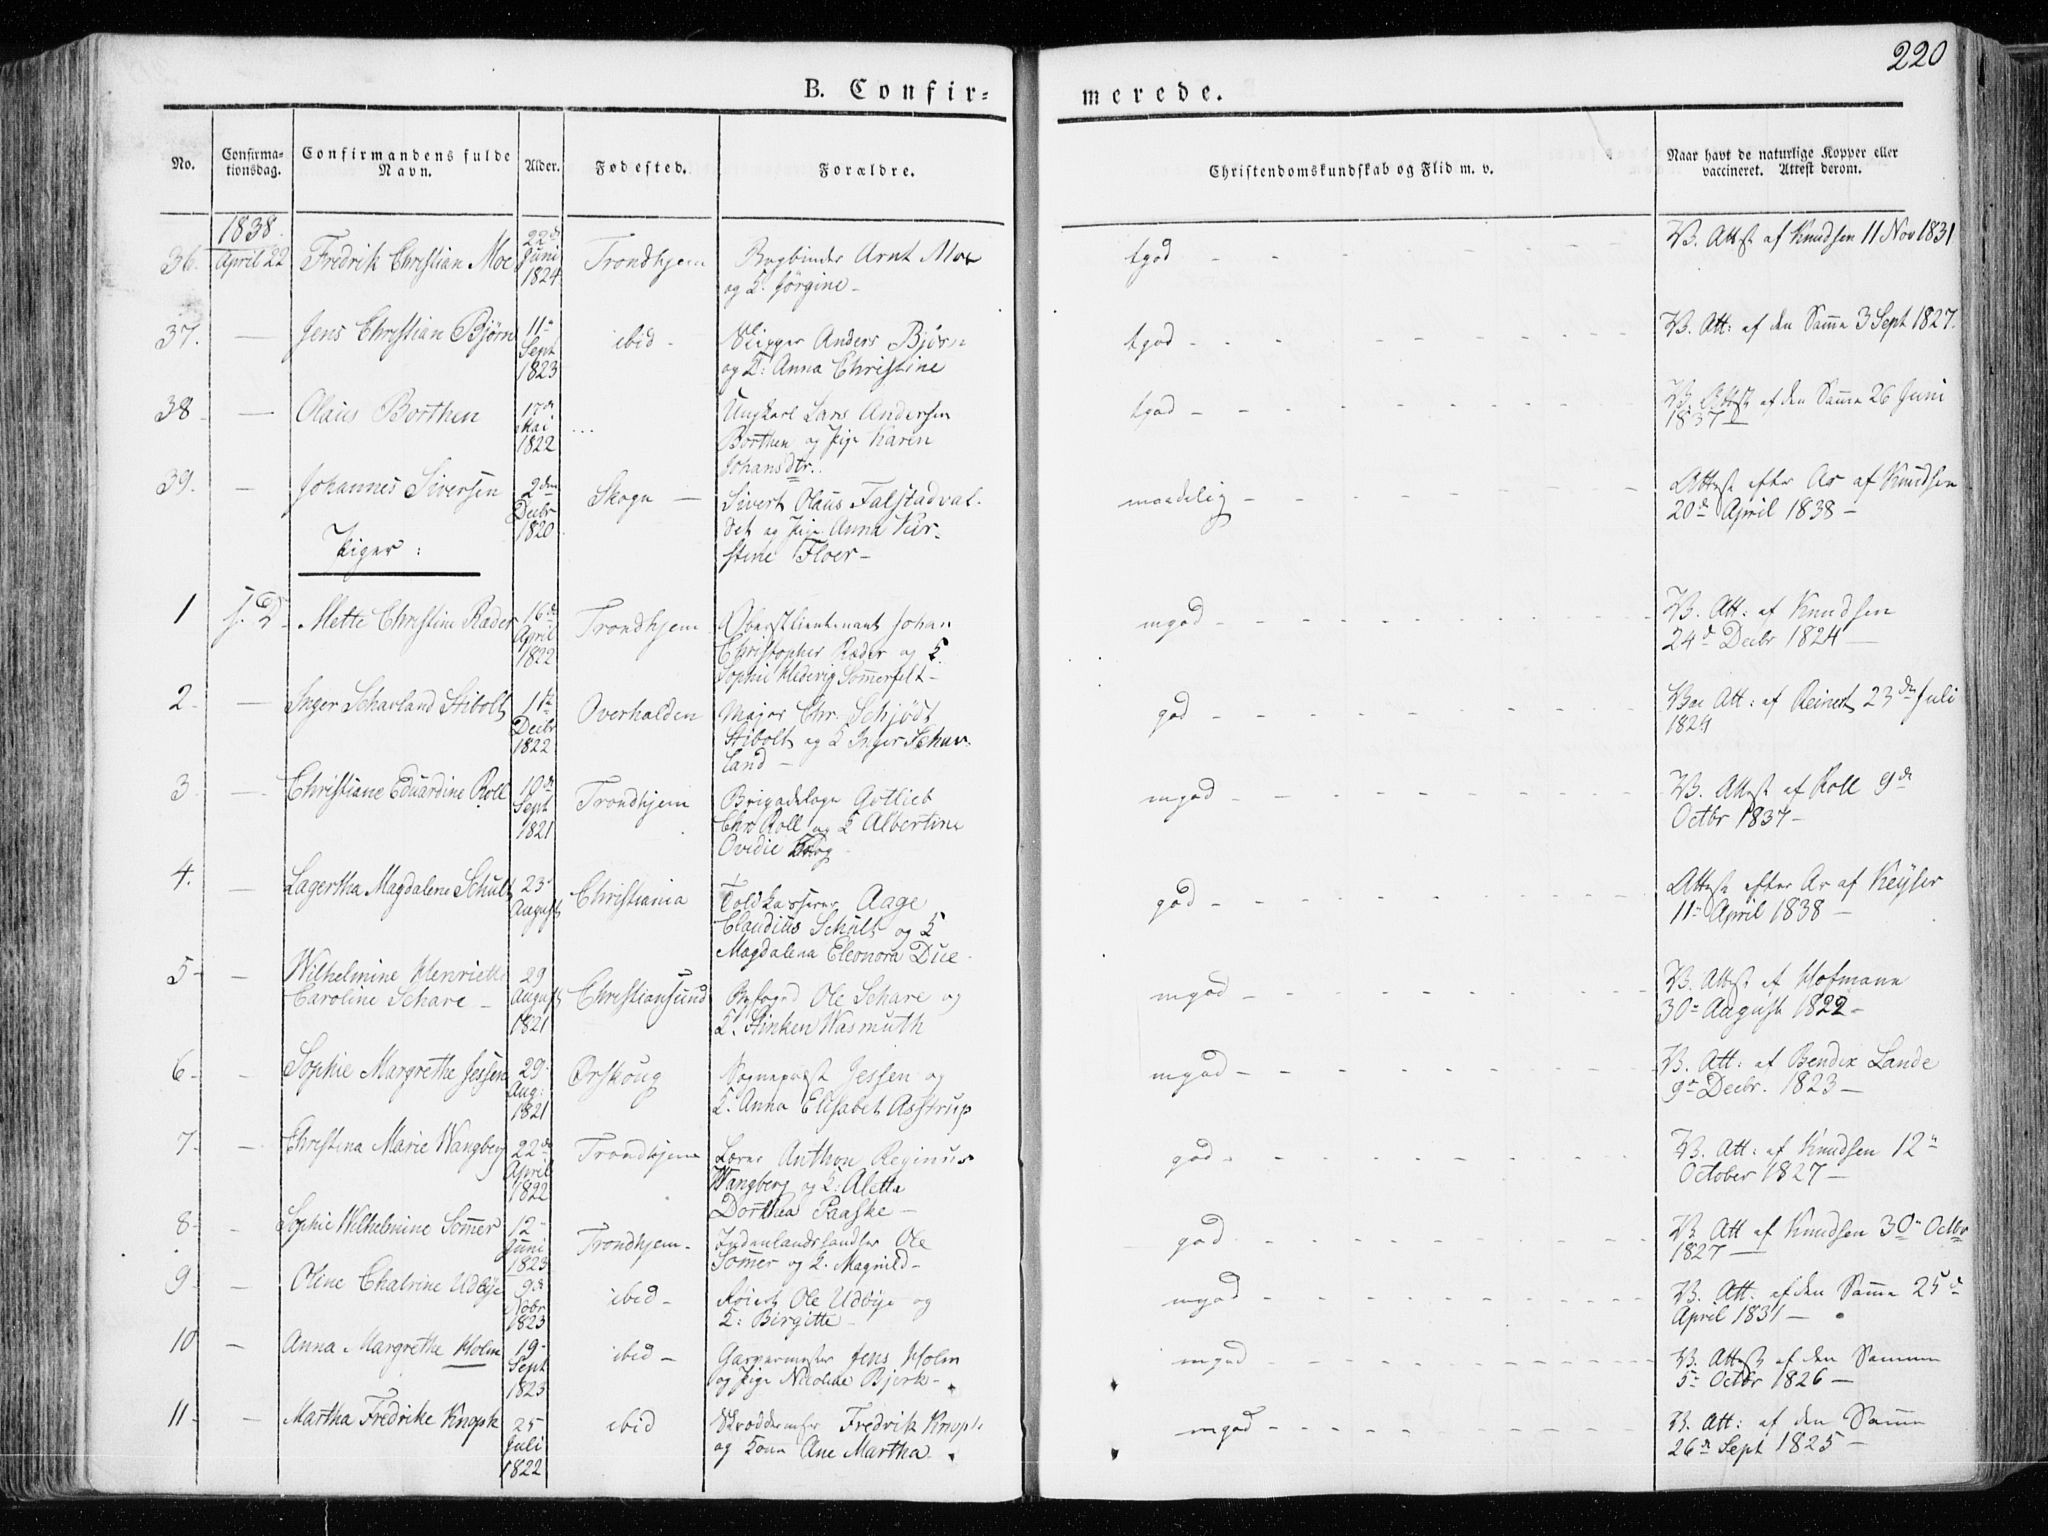 220
B. Confir=
merede.
No.
Confirma=
tionsdag.
Confirmandens fulde
Navn.
Alder.
Fødested.
Forældre.
Christendomskundskab og Flid m. v.
Naar havt de naturlige Kopper eller
vaccineret. Attest derom.
1838
36. April 22 Fredrik Christian Moe 22d Juni 1824 Trondhjem Bogbinder Arnt Moe
og H. Jørgine - tgod V. Attest af Knudsen 11 Nov 1831
37. — Jens Christian Bjørn 11te Sept 1823 ibid - Anders Bjørn
og H: Anna Christine tgod V. Att: af den Samme 3 Sept 1827.
38 — Olaus Borthen 17de Mai 1822 ... Ungkarl Lars Andersen
Borthen og Pige Karen
Johansdtr. tgod V. Attest af den Samme 26 Juni
1837 —
39. — Johannes Siversen 2den Decbr 1820 Skogn — Sivert Olaus Falstadval-
det og Pige Anna Kir-
stine Floer — maadelig Attest efter Ar af Knudsen
20d April 1838 —
Piger:
1 s. D. Mette Christine Ræder 16de April 1822 Trondhjem Oberstlieutenant Johan
Christopher Ræder og H.
Sophie Hedevig Sommerfelt — mgod V. Att: af Knudsen
24d Decbr 1824 —
2 — Inger Schavland Stibolt 11te Decbr 1822 Overhalden Major Chr. Schjødt
Stibolt og H Inger Schav-
land — god Vac Att: af Reinert 23de Juli
1824
3 — Christiane Eduardine Roll 19de Sept 1821 Trondhjem Brigadelæge Gotlieb
Chr Roll og H Albertine
Ovidie mgod V. Attest af Roll 9de
Octbr 1837 —
4. — Lagertha Magdalene Schult 23 August Christiania Toldkasserer Aage
Claudius Schult og H
Magdalena Eleonora Due - god Attest efter Ar af Keyser
11te April 1838 —
5 — Wilhelmine Henriette
Caroline Schare — 29 August 1821 Christiansund Byfoged Ole Schare og
H. Stinken Wasmuth mgod V. Attest af Hofmann
30te August 1822 -
6 — Sophie Margrethe Jessen 29 Aug: 1821 Ørskoug Sognepræst Jessen og
H. Anna Elisabet Astrup mgod V. Att: af Bendix Lande
9de Decbr. 1823 —
7 — Christina Marie Wangberg 22de April 1822 Trondhjem Lærer Anthon Reginus
Wangberg og H: Aletta
Dorthea Paaske — god V. Att: af Knudsen 12te
October 1827 —
8 — Sophie Wilhelmine Sommer 12 Juni 1823 Trondhjem. Indenlandshandler Ole
Sommer og H. Magnild — god V. Att af Knudsen 30te Octbr
1827 —
9 — Oline Chatrine Udbye 9de Nobr 1823 ibid — Ole Udbye og
H: Birgitte — mgod V. Att. af den Samme 25de
April 1831 —
10 — Anna Margrethe Holm 19 Sept 1823 ibid — Garvermester Jens Holm
og Pige Nicoline Bjerk — mgod V. Attest af den Samme
5te Octbr 1826 —
11 — Martha Fredrike Knoph 25 Juli 1822 ibid Skreddermester Fredrik Knoph
og Kone Ane Martha. mgod V. Att: af den Samme
26de Sept 1825 —